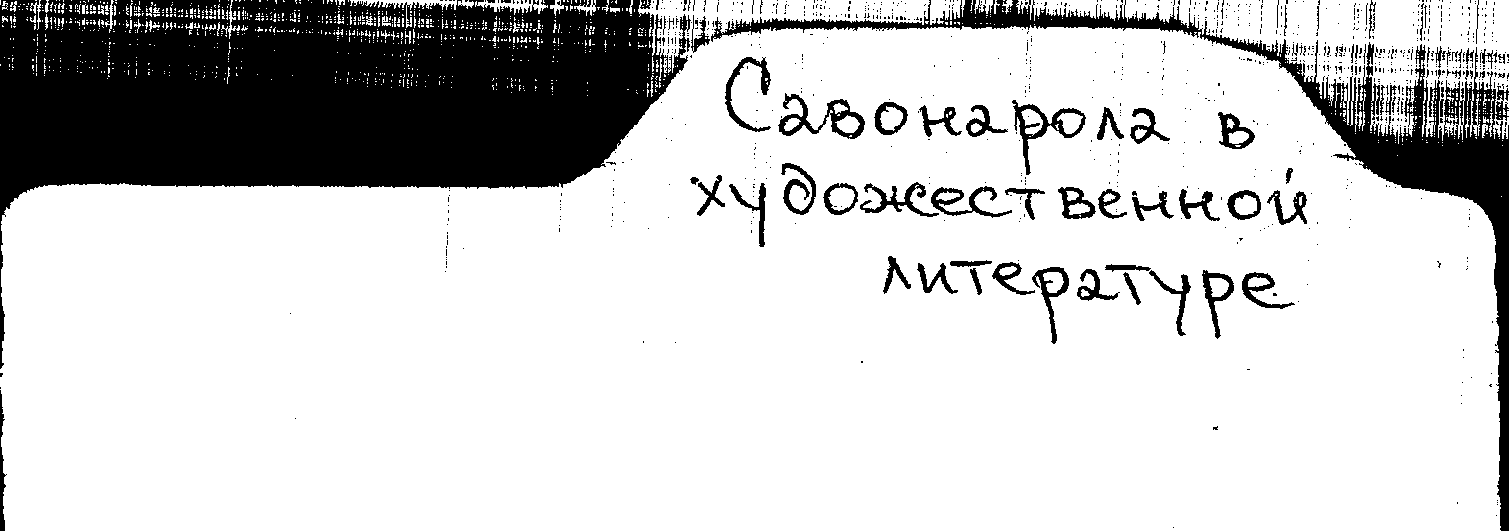 Савонарола в
художественной
литературе